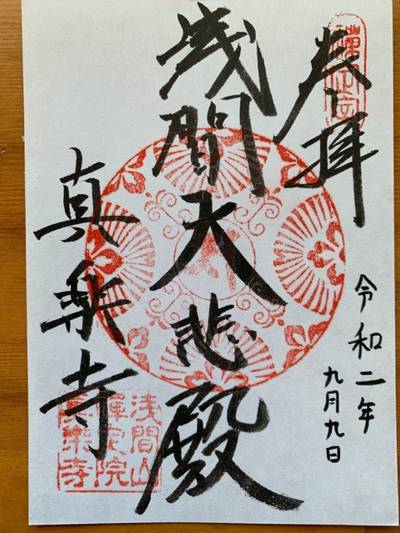 奉拝
令和二年
九月九日
浅間大悲殿
真楽寺
浅間山
院
真楽寺